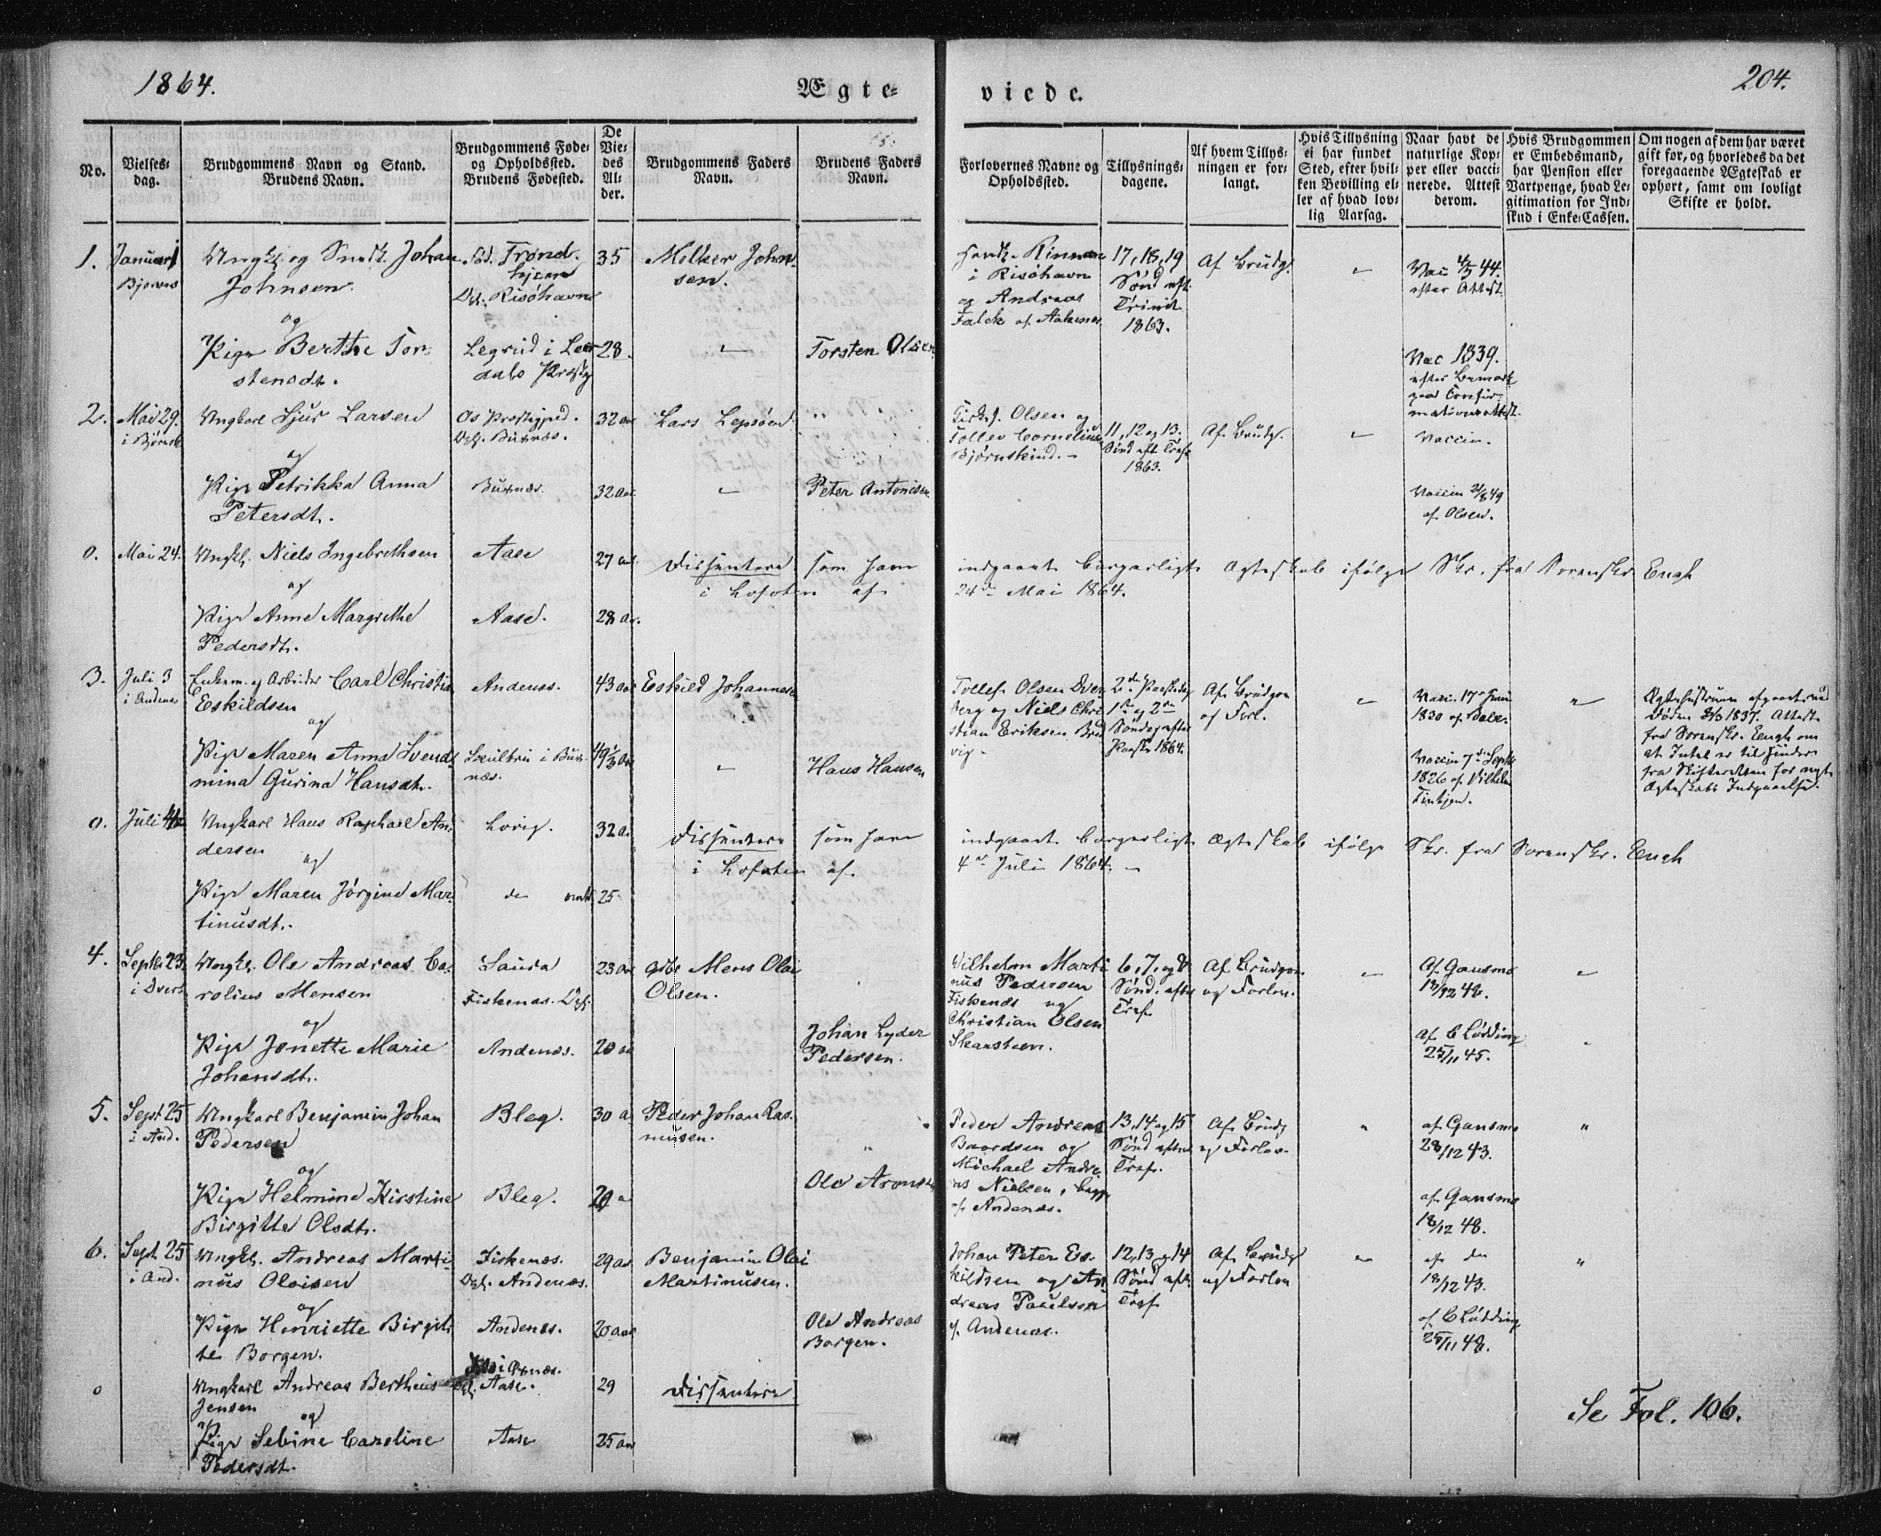 1864.
Ægte-
viede.
204.
No.
Vielses-
dag.
Brudgommens Navn og Stand.
Brudens Navn.
Brudgommens Føde-
og Opholdssted.
Brudens Fødested.
De
Vie-
des
Al-
der.
Brudgommens Faders
Navn.
Brudens Faders
Navn.
Forlovernes Navne og
Opholdssted.
Tillysnings-
dagene.
Af hvem Tillys-
ningen er for-
langt.
Hvis Tillysning
ei har fundet
Sted, efter hvil-
ken Bevilling el-
ler af hvad lov-
lig Aarsag.
Naar havt de
naturlige Kop-
per eller vacci-
nerede. Attest
derom.
Hvis Brudgommen
er Embedsmand,
har Pension eller
Vartpenge, hvad Le-
gitimation for Ind-
skud i Enke-Cassen.
Om nogen af dem har været
gift før, og hvorledes da det
foregaaende Ægteskab er
ophørt, samt om lovligt
Skifte er holdt.
1.
Januar 1
Ungk. og Smed. Johan
Johnsen.
og
Pige Berthe Tor-
stensdt.
Fød. Trond-
hjem
Opl. Risøhavn
Legrid i Leer
dals Præstg
35
28.
Melker John-
sen.
Torsten Olsen
Rinnan
i Risøhavn
og Andreas
Falck af
17, 18, 19
Sønd eft.
Trinit
1863.
Af Brudg.
Vac 44.
efter Attest
Vac 1839.
efter
paa Confir-
mationsattest.
2.
Mai 29.
Ungkarl Sjur Larsen
og
Pige Petrikka Anna
Petersdt.
Os Præstegjeld.
Opl. Buknes.
Buknæs.
32 aar
32 aar.
Lars
Peter Antonisen
Olsen og
Tollev Cornelius
Bjørnskind.
11, 12 og 13.
Sønd eft. Tref
1863.
Af Brudg.
Vaccin.
Vaccin 849
af Olsen.
0.
Mai 24.
Ungk. Niels Ingebrethsen
og
Pige Anne Margrethe
Pedersdt.
Aase
Aase.
27 a
28 a.
Dissentere som have indgaaet borgerligt Ægteskab ifølge Skr. fra Sorenskr. Engh
i Lofoten af 24de Mai 1864.
3.
Juli 3
i Andenæs
Enkem. og Arbeider Carl Christian
Eskildsen
og
Pige Maren Anna Svend-
mina Gurina Hansdt.
Andenæs.
i Buk-
næs.
43 aar
49½ aar
Eskild Johannesen
Hans Hansen
Tollef Olsen Dver
berg og Niels Chri
stian Eriksen
vig.
1ste og 2den
Søndag efter
Paaske 1864.
Af Brudgom
og Forl.
Vaccin. 17de Juni
1830 af
Vaccin 7de Septb
1826 af Vilhelm
Ægtehustruen afgaaet ved
Døden 1837. Attest
fra Sorenskr. Engh om
at Intet er til Hinder
fra Skifteretten for nyt
Ægteskabs Indgaaelse.
0.
Juli 4
Ungkarl Hans Raphael An-
dersen
og
Pige Maren Jørgine Mar-
tinusdt.
32 a.
25
Dissentere som have indgaaet borgerligt Ægteskab ifølge Skr. fra Sorenskr. Engh
i Lofoten af 4de Juli 1864.
4.
Septb 23
i Dverb
Ungk. Ole Andreas Ca-
rolius Mensen
og
Pige Jonette Marie
Johansdt.
Saura
Fiskenæs.
Andenæs.
23 aar
20 aar
Mens Olai
Olsen.
Johan Lyder
Pedersen.
Vilhelm Marti
nus Pedersen
Fiskenæs og
Christian Olsen
Skarsteen.
6, 7, og 8
Sønd. efter
Tref
Af Brudgom
og Forlov.
Af Gausmo
18/12 48.
Af C Lødding
25/11 45.
5.
Sept 25
i And.
Ungkarl Benjamin Johan
Pedersen
og
Pige Helmine Kirstine
Birgitte Olsdt.
Bleg.
Bleg.
30 a
Peder Johan Ras-
musen.
Ole Aronsen
Peder Andreas
Baardsen og
Michael Andre-
as Nielsen, begge
af Andenæs.
13, 14 og 15
Sønd efter
Tref.
Af Brudg
og Forlov.
af Gausmo
28/12 43.
af Gausmo
18/12 48.
6.
Sept 25
i And.
Ungk. Andreas Marti-
nus Olaisen
og
Pige Henriette Birgit-
te Borgen.
Fiskenæs.
Opl. Andenæs.
Andenæs.
29 aar
20 aar
Benjamin Olai
Martinusen.
Ole Andreas
Borgen.
Johan Peter Es-
kildsen og An
dreas Paulsen
af Andenæs.
12, 13 og 14
Sønd eft.
Tref
Af Brudg
og Forlov
af do
18/12 43.
af C Lødding
25/11 48.
0
Ungkarl Andreas Bertheus
Jensen
og
Pige Sebine Caroline
Pedersdt.
Aase.
Aase
29
25 aar
Dissentere
Se Fol. 106.